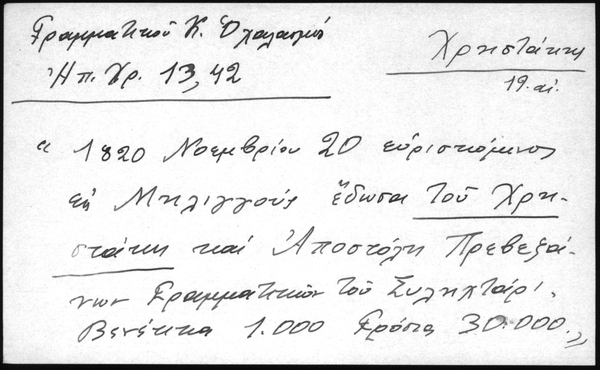 Γραμματικοῦ Κ. Ὁλαλασμός
Ἠπ. Χρ. 13, 42
Χρηστάκη
19. αἰ.
“ 1820 Νοεμβρίου 20 εὑρισκόμενος
εἰς Μηλιγγούς ἔδωσα τοῦ Χρη-
στάκη καί Ἀποστόλη Πρεβεζά-
νων Γραμματικῶν τοῦ Συληχτάρι.
Βενέτικα 1.000 Γρόσια 30.000. „